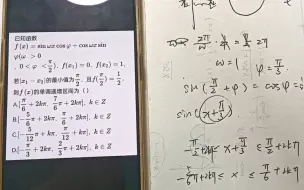 已知函数
f(x) = sin ωx cos φ + cos ωx sin
φ(ω > 0
, 0 < φ < π/2). f(x₁) = 0, f(x₂) = 1,
若|x₁ − x₂|的最小值为π/2, 且f(π/2) = 1/2,
则f(x)的单调递增区间为（ ）
A.[π/6 + 2kπ, 7π/6 + 2kπ], k ∈ Z
B.[−5π/6 + 2kπ, π/6 + 2kπ], k ∈ Z
C.[−5π/12 + kπ, π/12 + kπ], k ∈ Z
2π
ω = 1
φ = π/3
sin(π/2 + φ) = cos φ =
sin(x + π/3)
−π/2 + 2kπ ≤ x + π/3 ≤ π/2 + 2kπ
−5/6π + 2kπ ≤ x ≤ π/6 + 2kπ